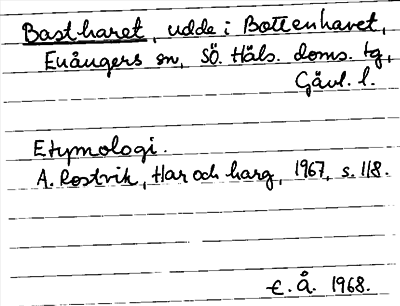 Bastharet, udde i Bottenhavet,
Enångers sn, SÖ. Häls. doms. tg,
Gävl. l.
Etymologi.
A. Rostvik, Har och harg, 1967, s. 118.
E. Å. 1968.